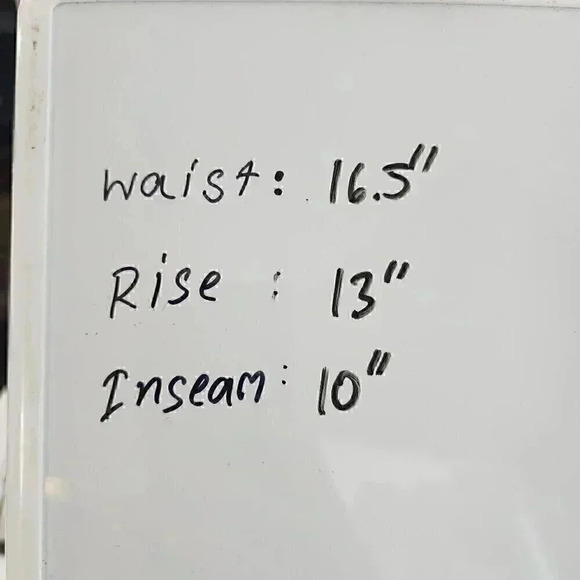 Waist: 16.5"
Rise : 13"
Inseam: 10"